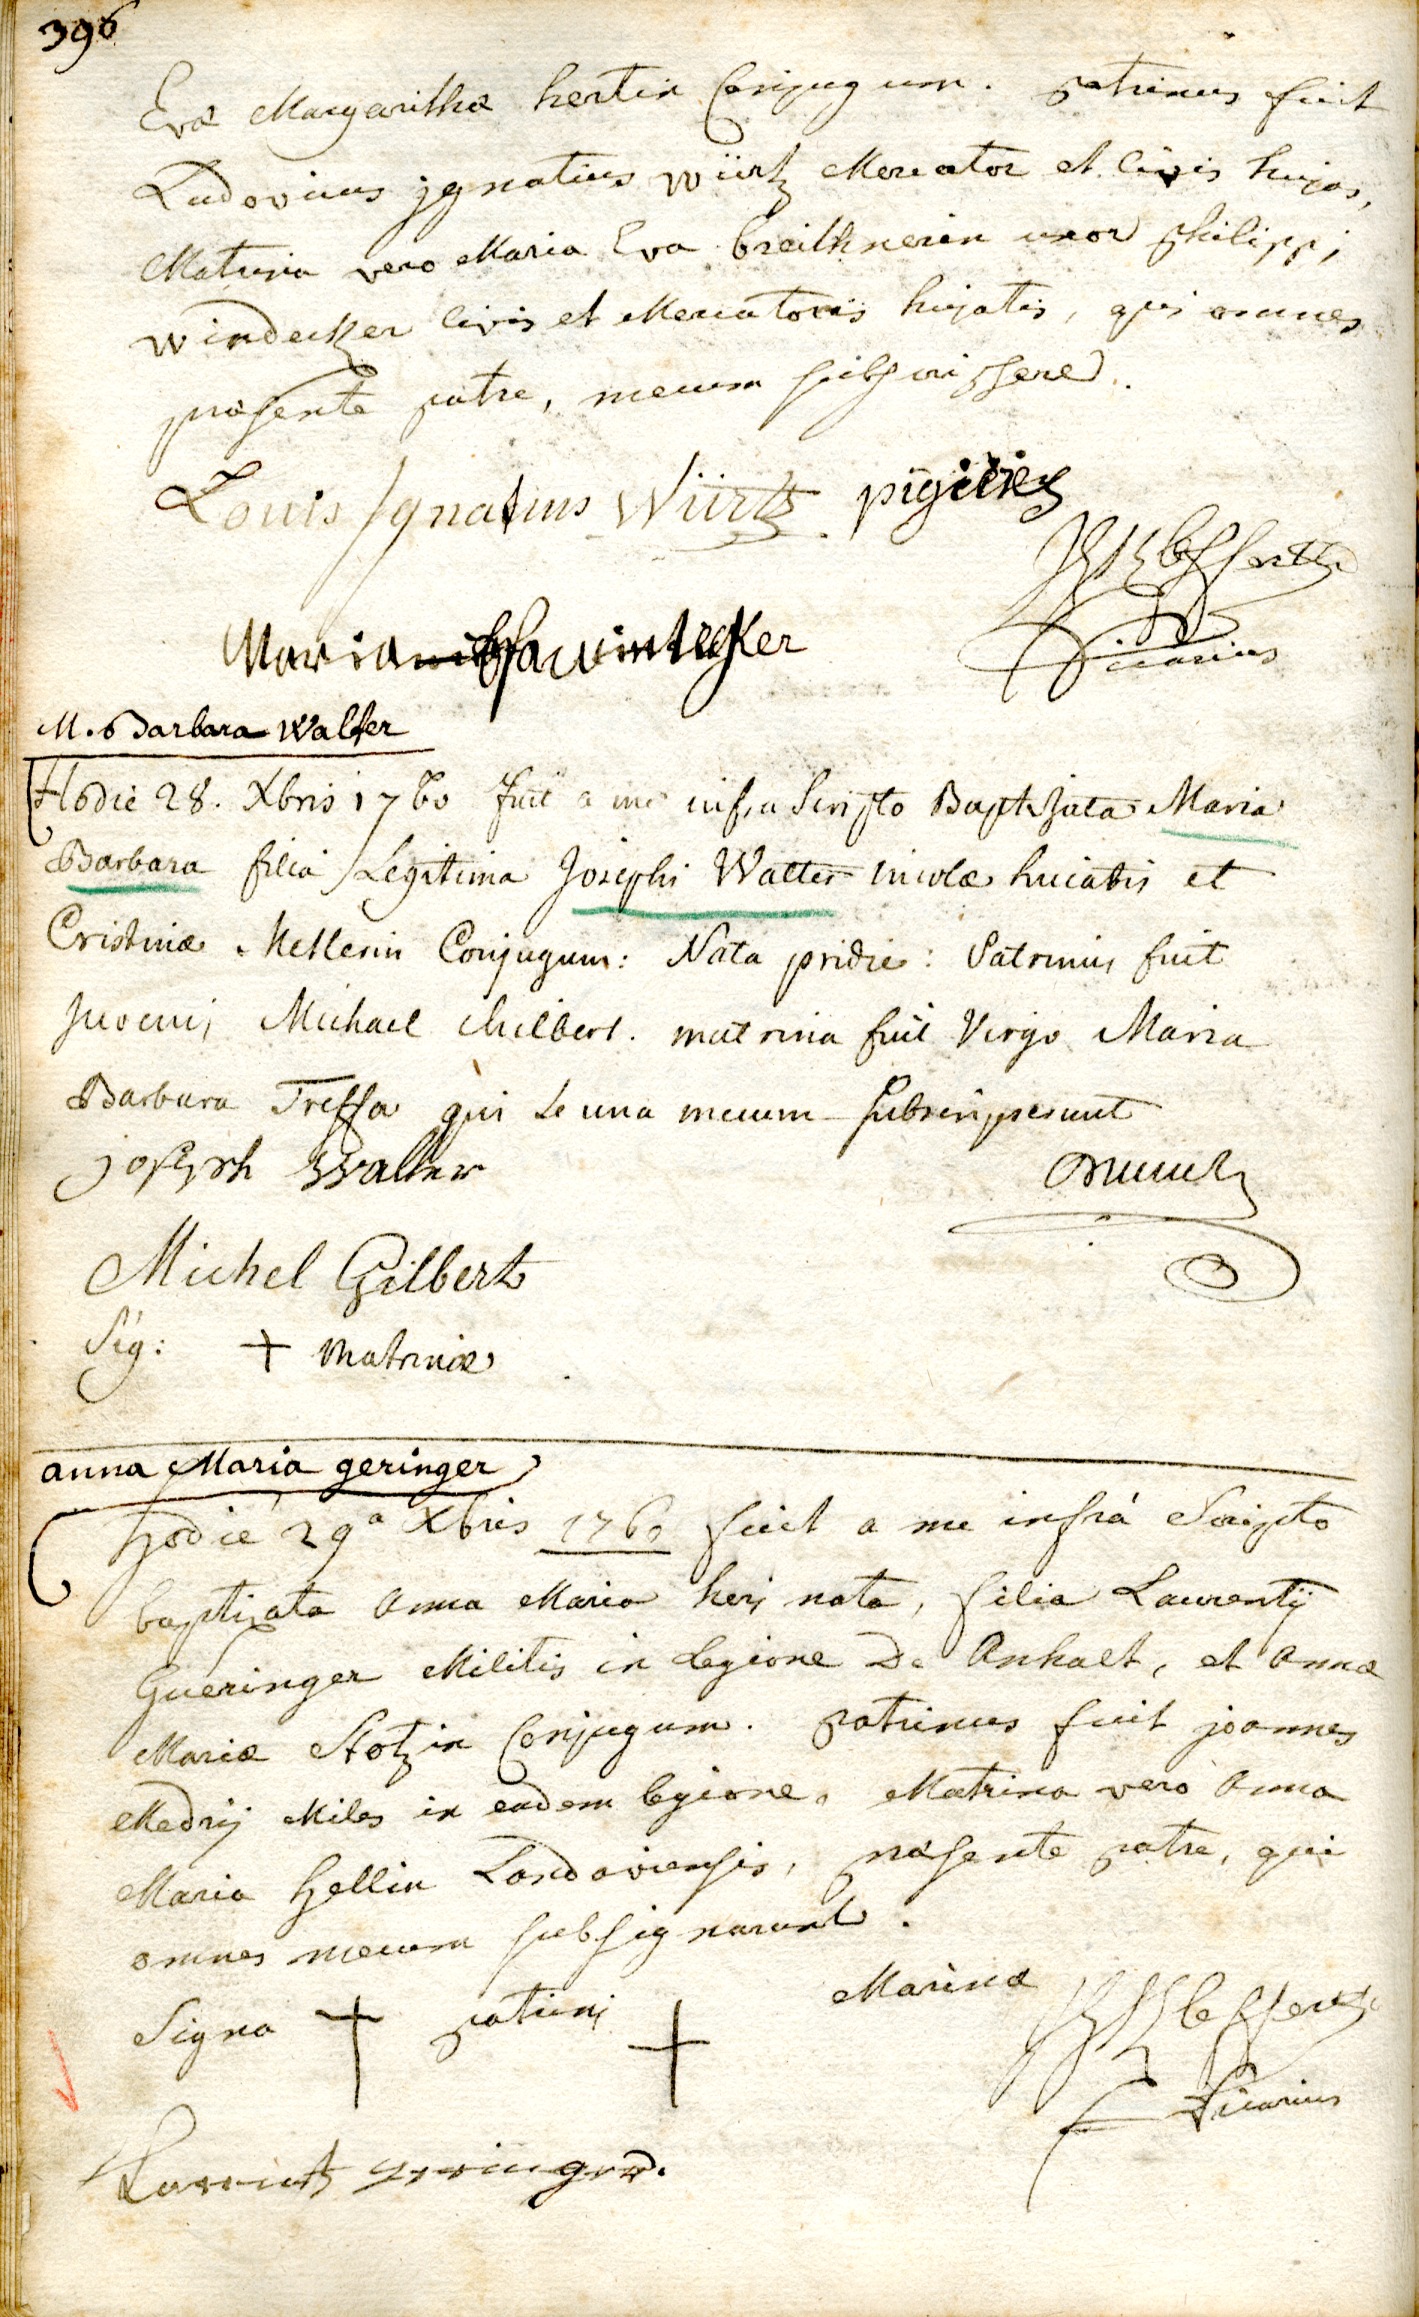 396
Evæ Margarithæ hertin Conjugum. patrinus fuit
Ludovicus jgnatius würtz Mercator et Civis hujas,
Matrina vero Maria Eva breithnerin uxor philippi
windecker Civis et Mercatoris hujatis, qui omnes
præsente patre, mecum subscripsere.
Louis Ignatius Würtz
Vicarius
M. Barbara Walter
Hodie 28. Xbris 1760 fuit a me infra Scripto Baptisata Maria
Barbara filia Legitima Josephi Walter incolæ huiatis et
Cristinæ Metlerin Conjugum: Nata pridie: Patrinus fuit
Juvenis Michael Chilbert. matrina fuit Virgo Maria
Barbara Treffa qui se una mecum Subscripserunt
joseph Walter
Michel Gilbert
Sig: + Matrinæ
anna Maria geringer
hodie 29a Xbris 1760 fuit a me infrá Scripto
baptizata Anna Maria heri nata, filia Laurentij
Gueringer Militis in legione De Anhalt, et Annæ
Mariæ Stotzin Conjugum. patrinus fuit joannes
Medrij Miles in eadem legione, Matrina vero Anna
Maria hellin Landaviensis, præsente patre, qui
omnes mecum subsignarunt.
Signa + patrini + Marinæ
Vicarius